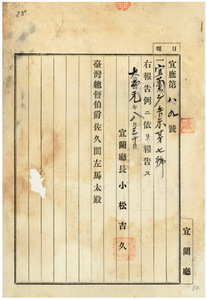 日報
宜廳第八九號
一宜蘭廳告示第七號
右報告例ニ依リ報告ス
大正元年八月三十日
宜蘭廳長 小松吉久
臺灣總督伯爵佐久間左馬太殿
宜蘭廳